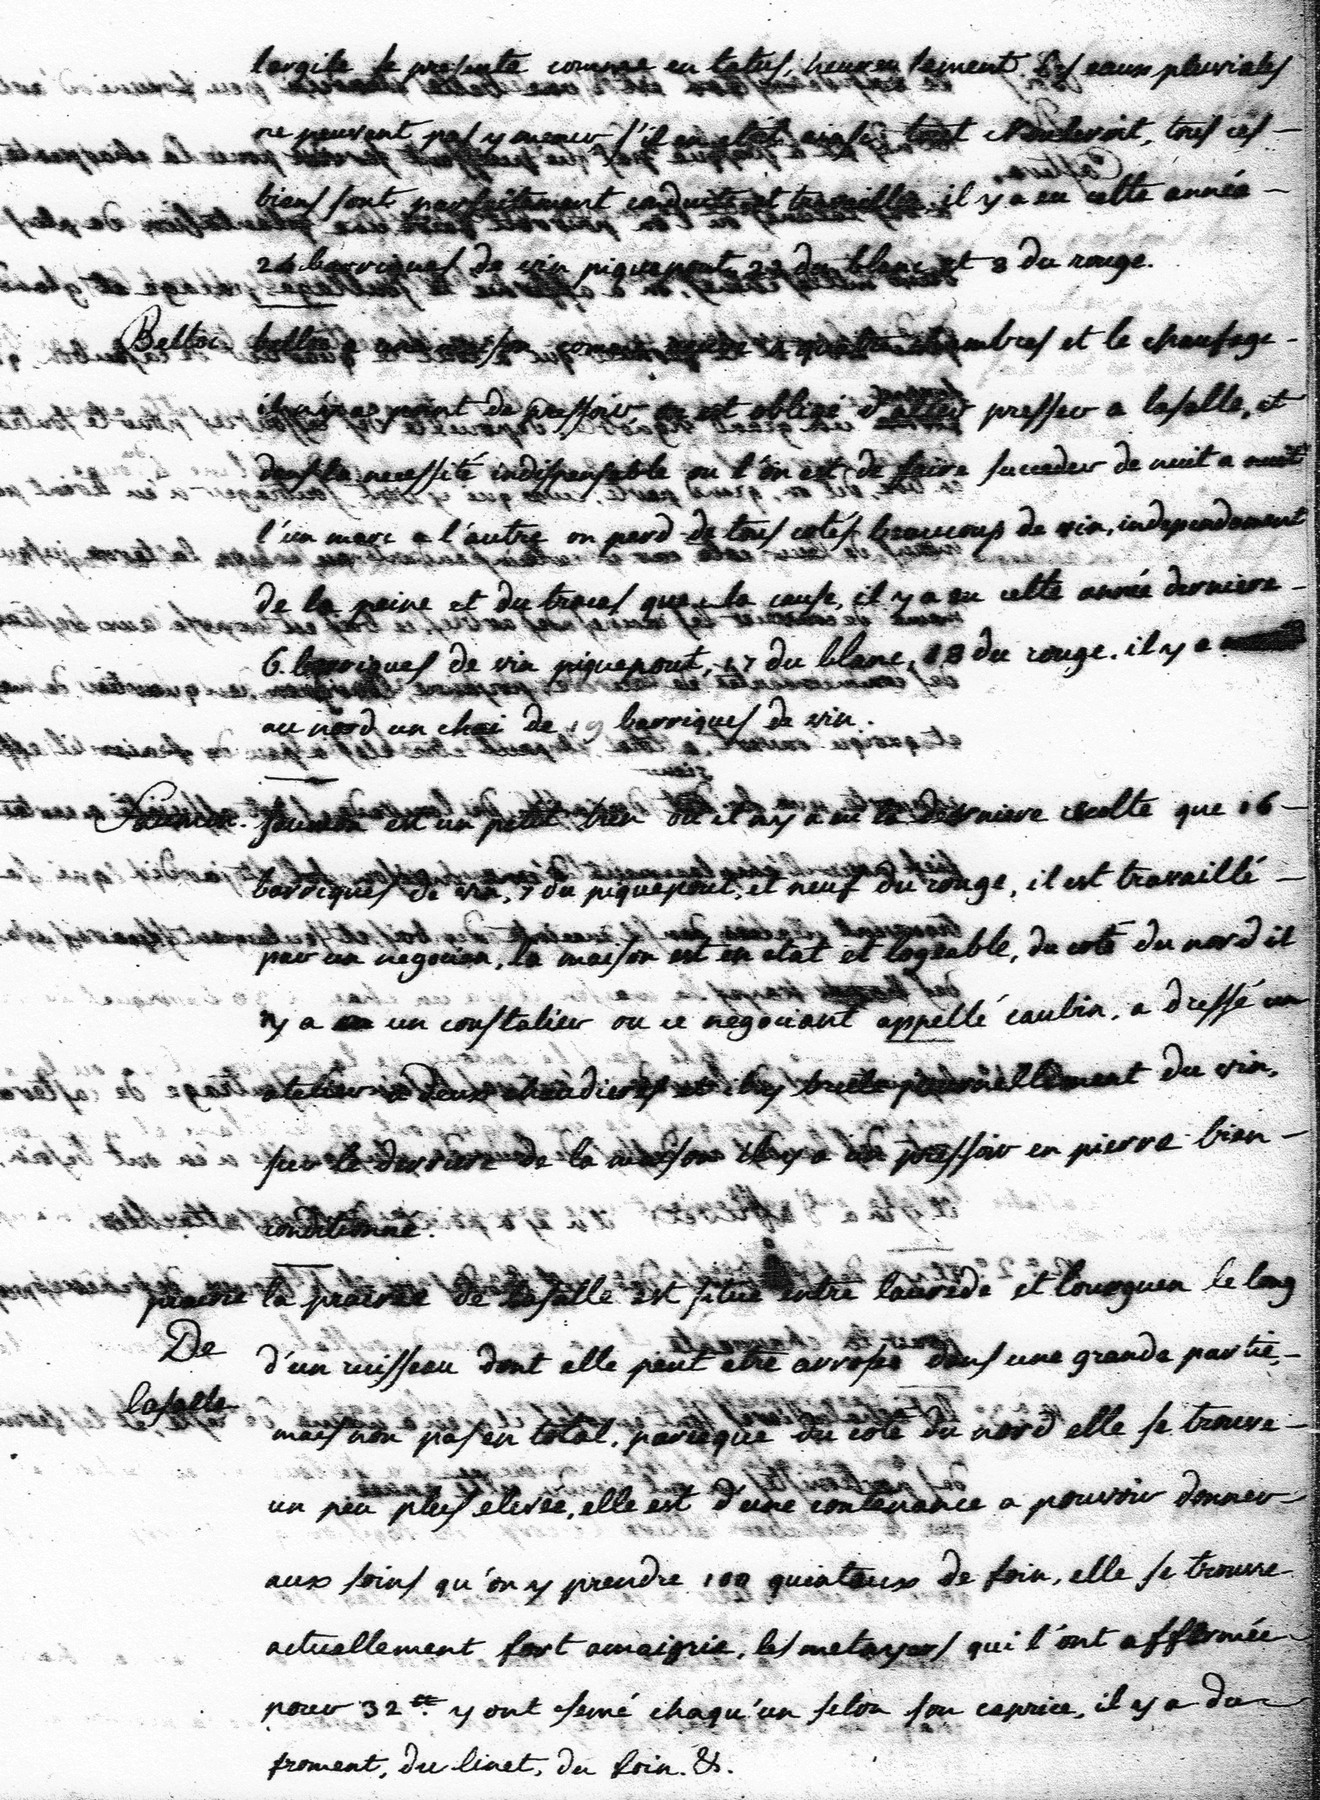 l'argile se presente comme en talus, heureusement les eaux pluviales
ne peuvent pas y mener s'il en etoit ainsi, tout s'ecrouleroit, tous ces
biens sont parfaitement conduits et travaillés, il y a eu cette année
barriques de vin piquepout 22 du blanc et 8 du rouge.
Belloc belloc a une maison comme quatre chambres et le chaufage
il n'y a point de pressoir on est obligé d'aller presser a lasalle, et
dans la necessité indispensable ou l'on est de faire succeder de nuit a nuit
l'un marc a l'autre on perd de tous cotés beaucoup de vin, independament
de la peine et du tracas que cela cause, il y a eu cette année derniere
6 barriques de vin piquepout, 17 du blanc, 18 du rouge. il y a
au nord un chai de 19 barriques de vin.
est un petit bien ou il n'y a eu la derniere recolte que 16
barriques de vin, 7 du piquepout, et neuf du rouge, il est travaillé
par un negocian, la maison est en etat et logeable, du coté du nord il
y a un coustalier ou ce negociant appellé caubin, a dressé un
atelier a deux chaudieres et il y brule journellement du vin,
sur le derriere de la maison il y a un pressoir en pierre bien
conditionné.
prairie la prairie de lasalle est situé entre laurede et lourquen le long
De d'un ruisseau dont elle peut etre arrosée dans une grande partie,
lasalle mais non pas en total, parceque du coté du nord elle se trouve
un peu plus elevée, elle est d'une contenance a pouvoir donner
aux soins qu'on y prendre 100 quintaux de foin, elle se trouve
actuellement fort amaigrie, les metayers qui l'ont affermée
pour 32 tt. y ont semé chaqu'un selon son caprice, il y a du
froment, du linet, du foin. &.